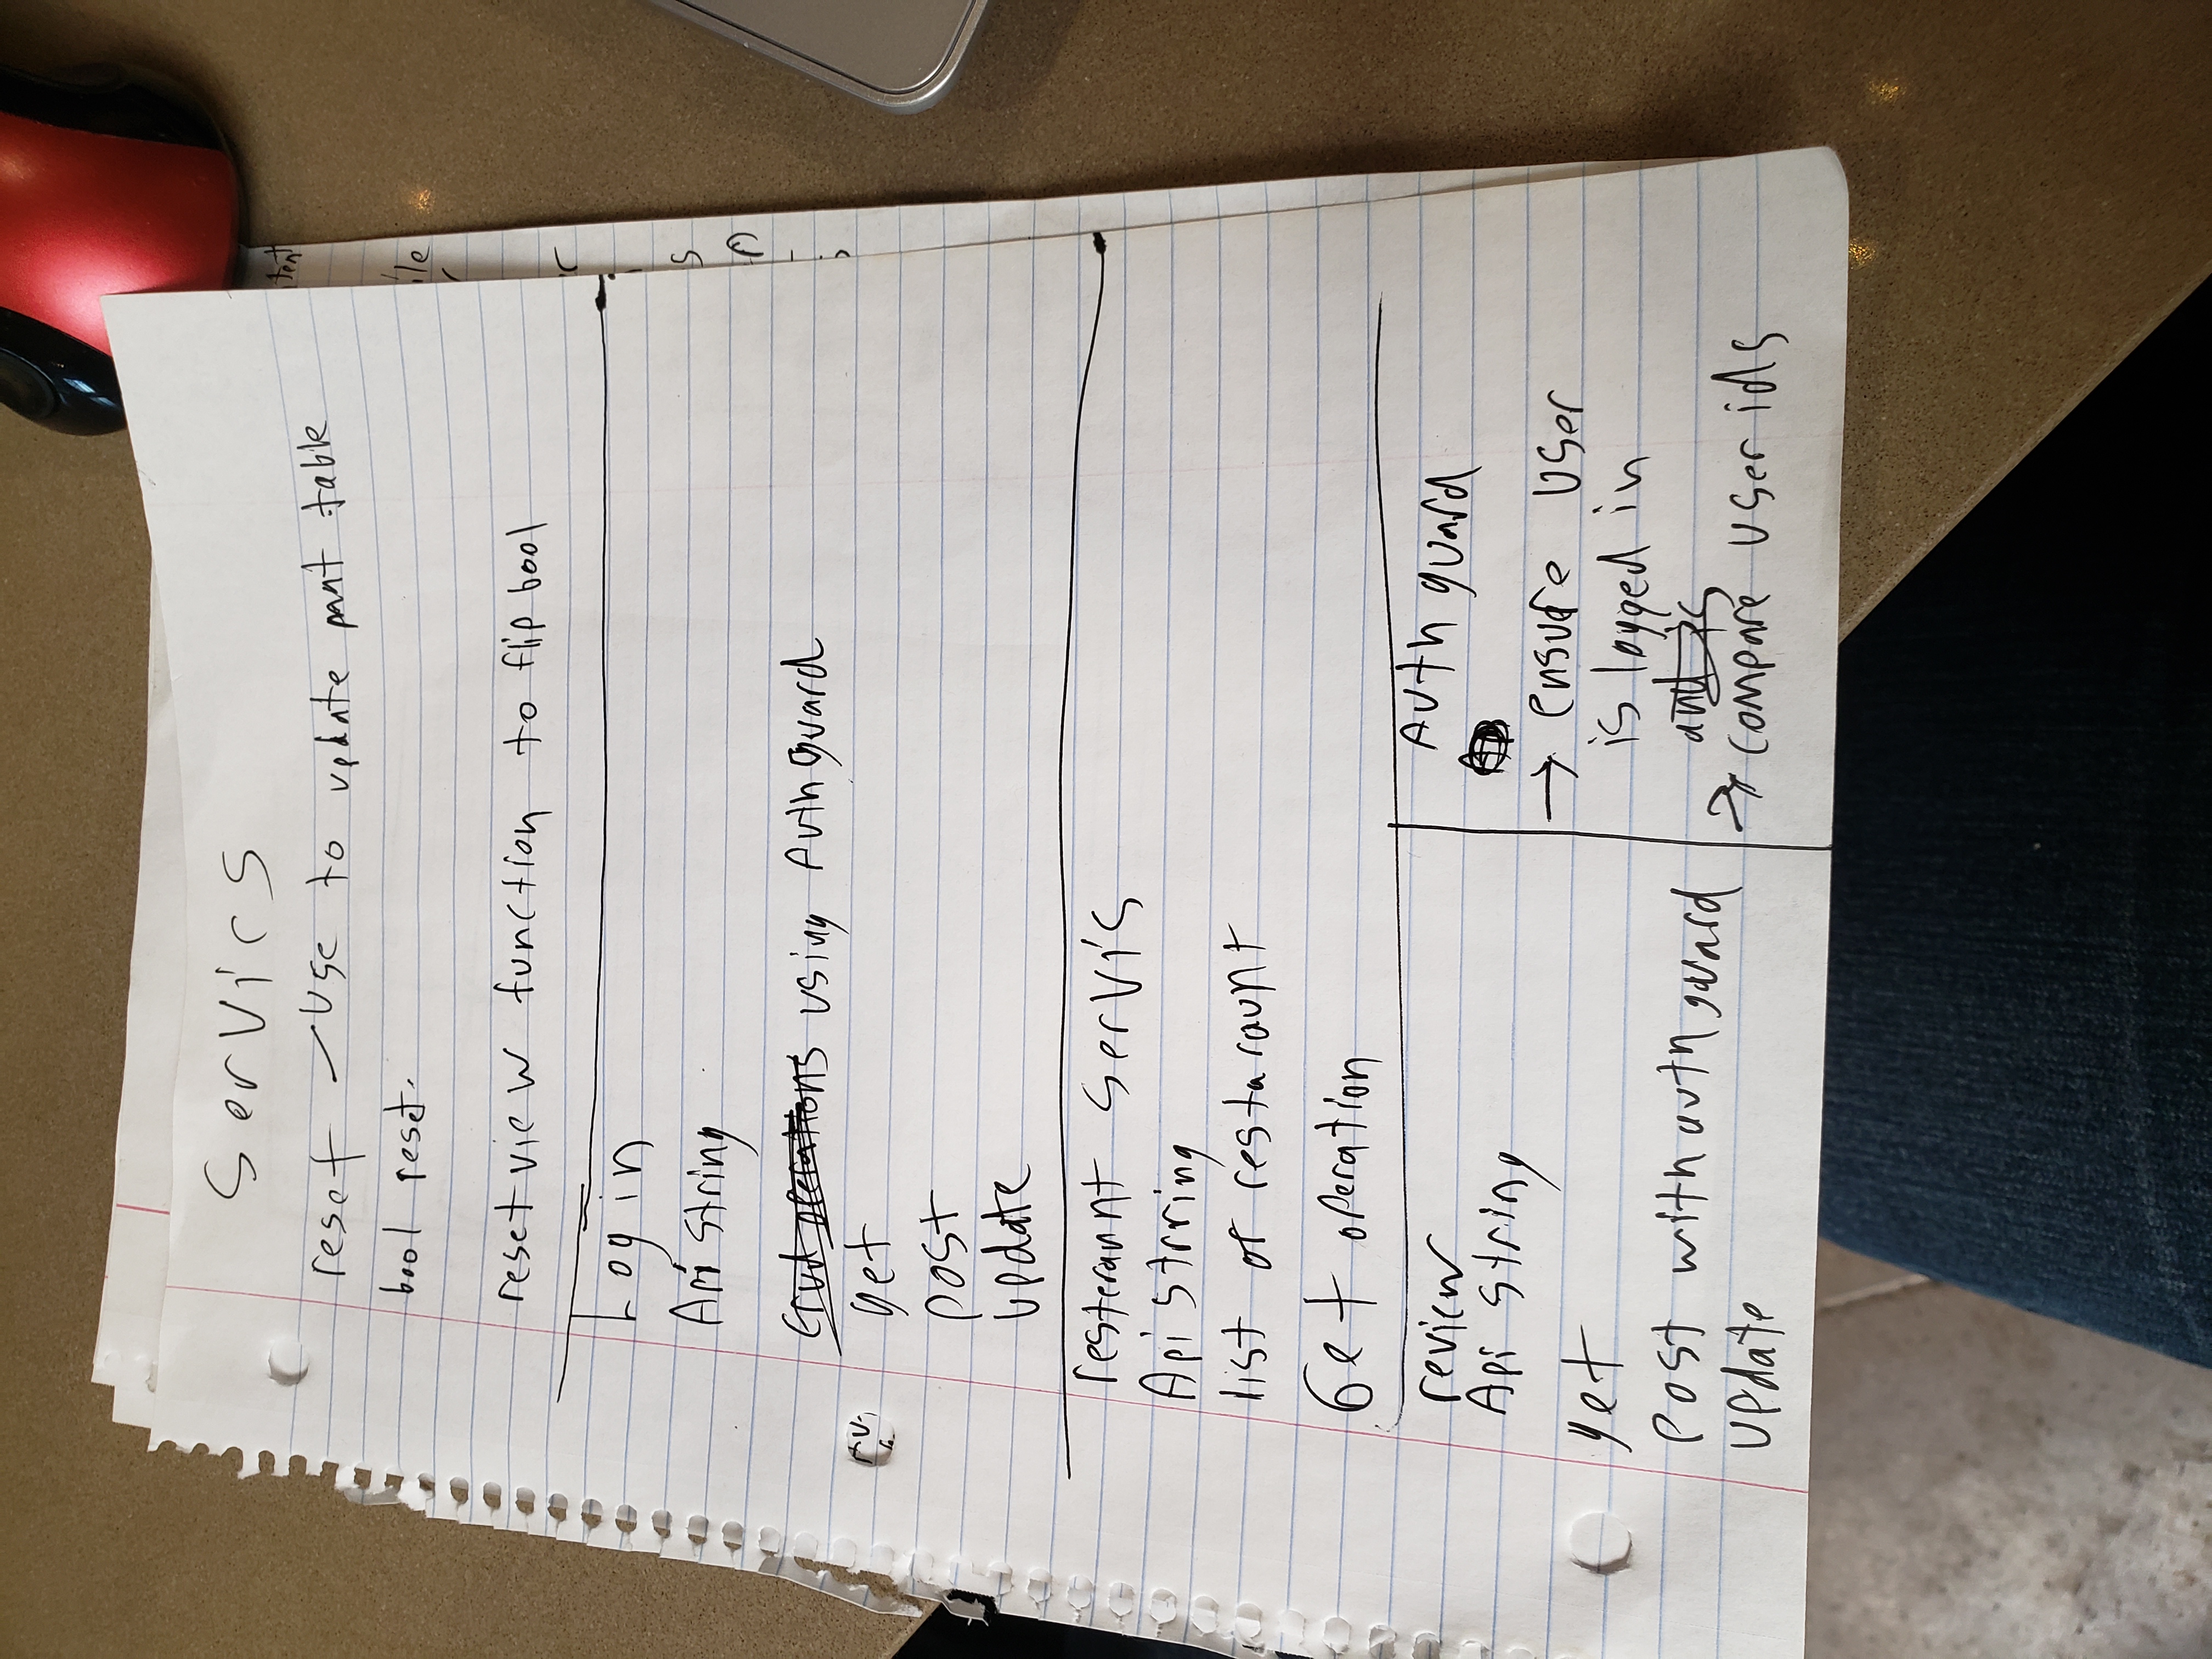 Servics
reset - Use to update table
bool reset.
reset view function to flip bool
Login
Api string
Crud operations using Auth guard
get
post
update
resteraunt servis
Api strring
list of restaraunt
Get operation
review
Api string
get
Post with auth guard
update
Auth guard
→ ensure user
is logged in
and is
→ compare user ids
tent
ile